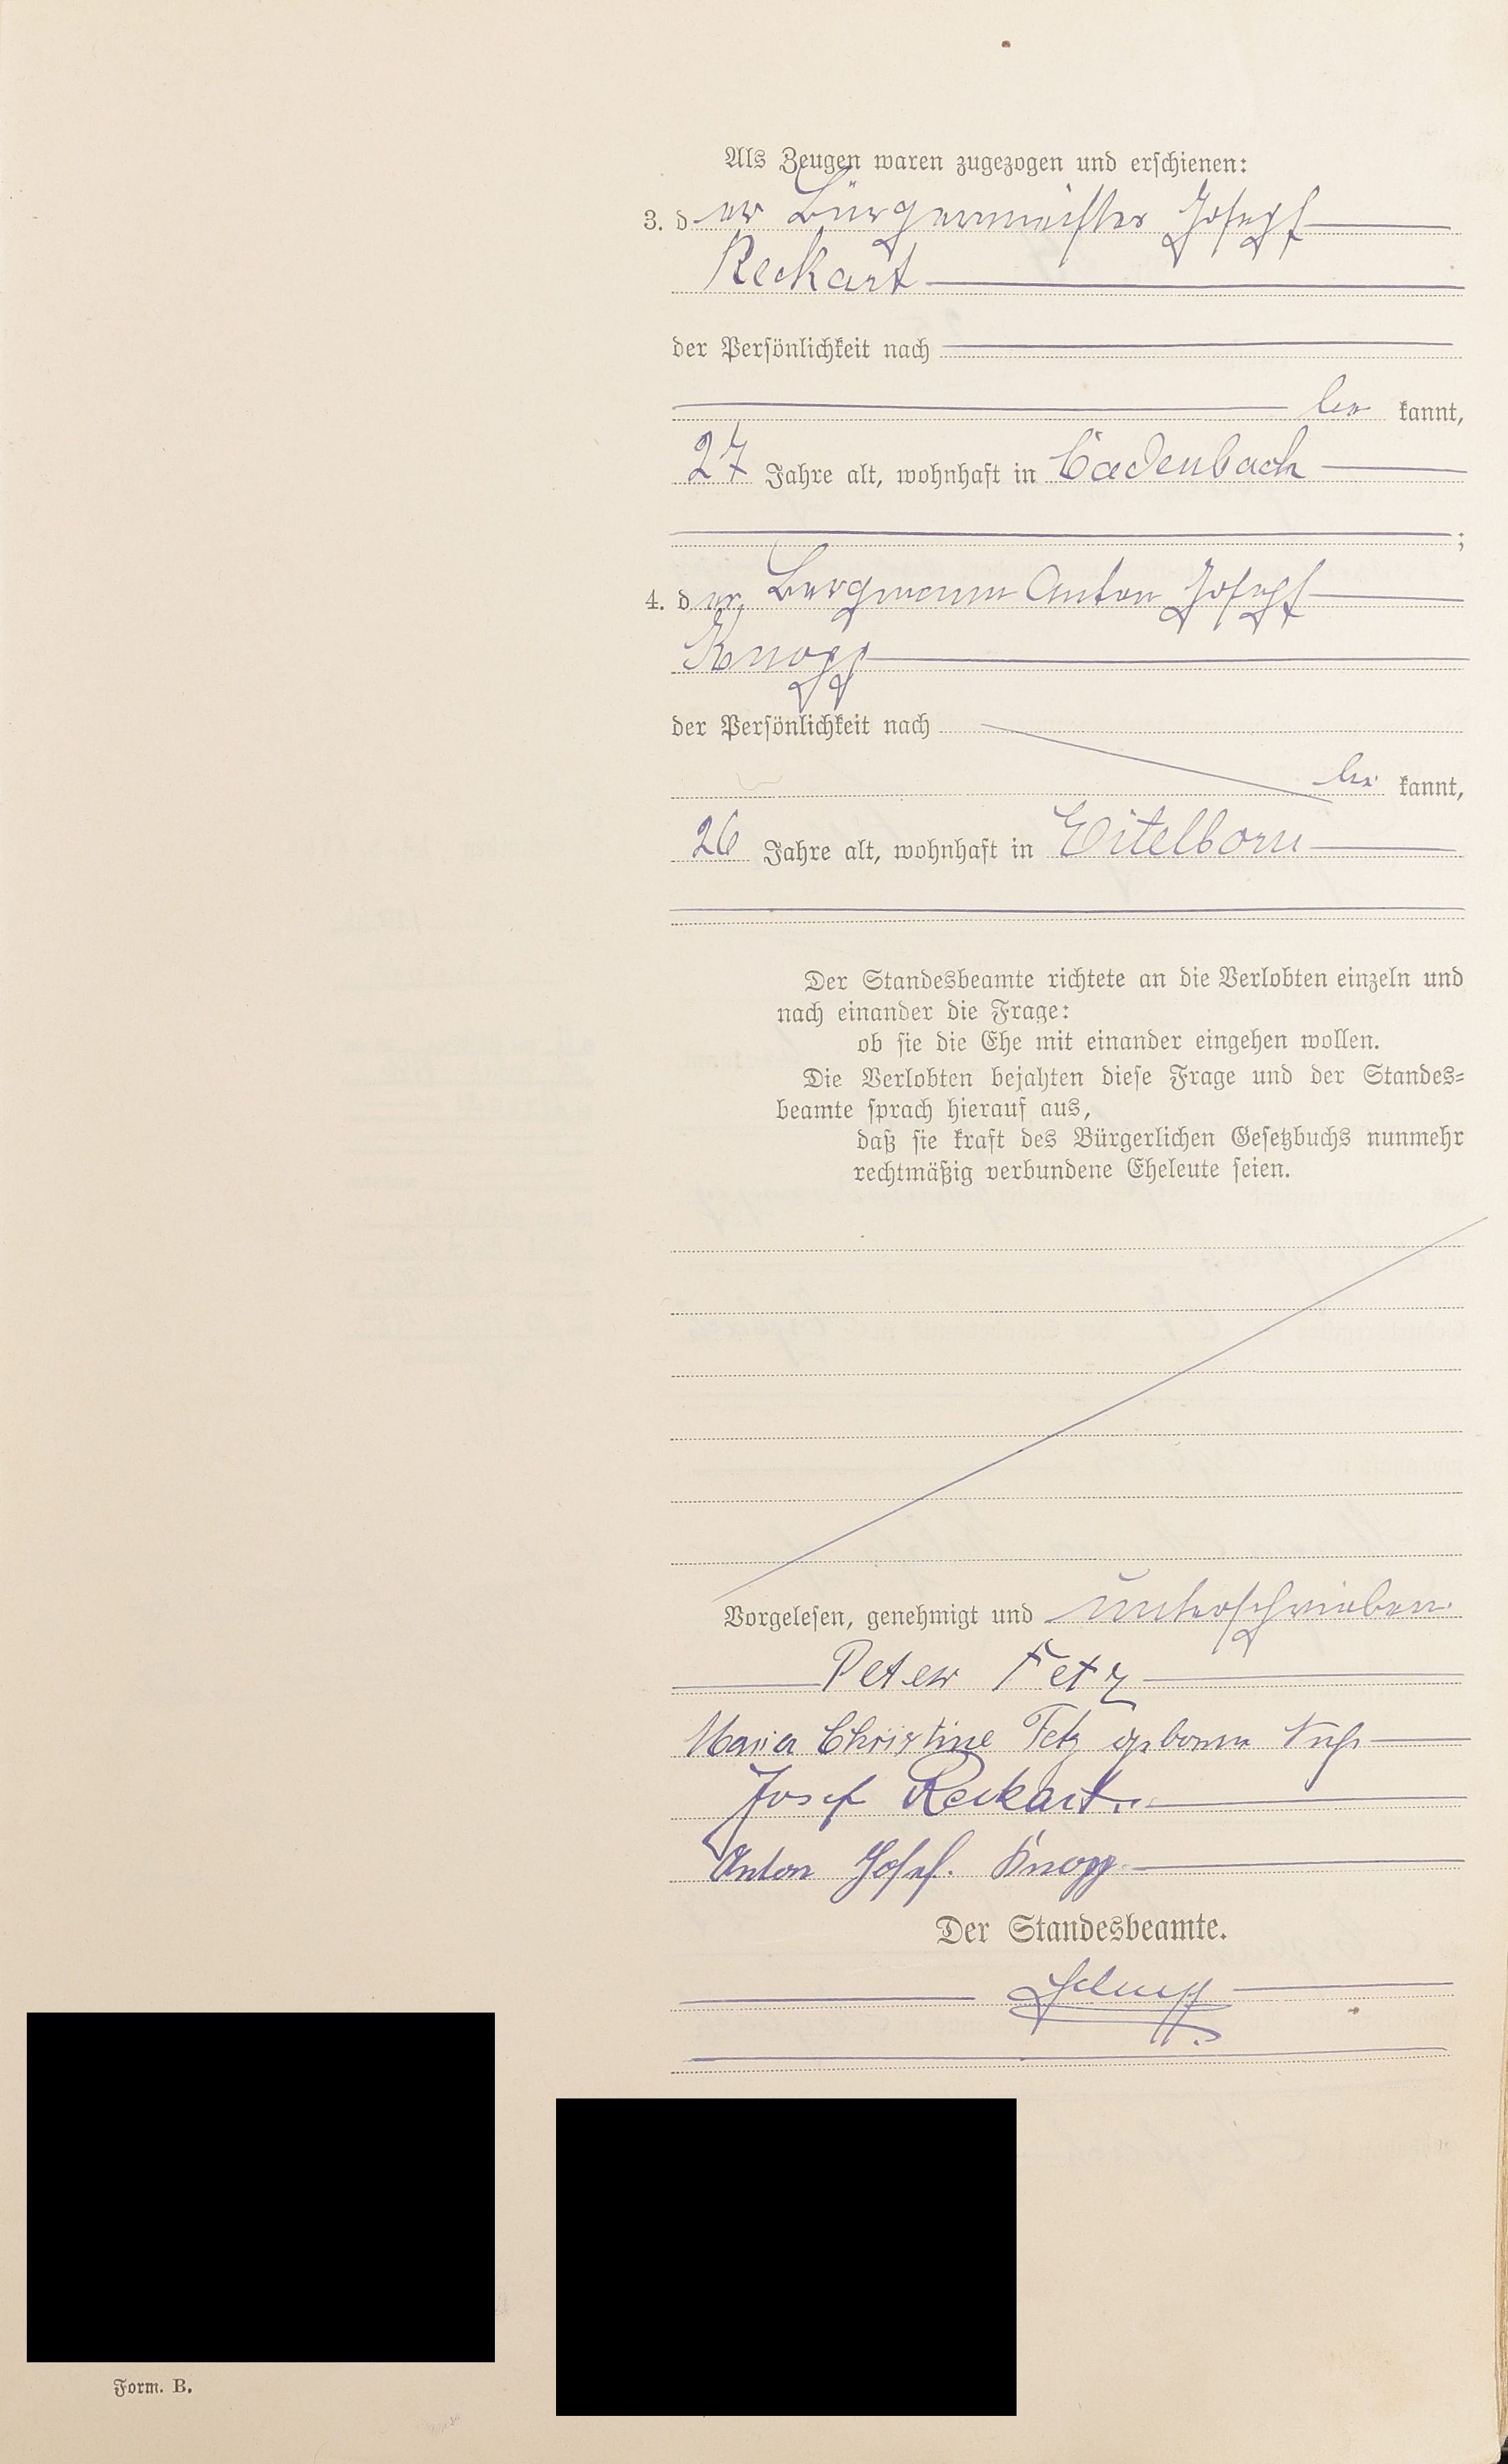 Als Zeugen waren zugezogen und erschienen:
3. der Bürgermeister Joseph
Reckart
der Persönlichkeit nach
be kannt,
27 Jahre alt, wohnhaft in Cadenbach
;
4. der Bergmann Anton Joseph
Knopp
der Persönlichkeit nach
be kannt,
26 Jahre alt, wohnhaft in Eitelborn
Der Standesbeamte richtete an die Verlobten einzeln und
nach einander die Frage:
ob sie die Ehe mit einander eingehen wollen.
Die Verlobten bejahten diese Frage und der Standes-
beamte sprach hierauf aus,
daß sie kraft des Bürgerlichen Gesetzbuchs nunmehr
rechtmäßig verbundene Eheleute seien.
Vorgelesen, genehmigt und unterschrieben
Peter Fetz
Maria Christine Fetz geborene
Josef Reckart
Anton Josef Knopp
Der Standesbeamte.
Form. B.